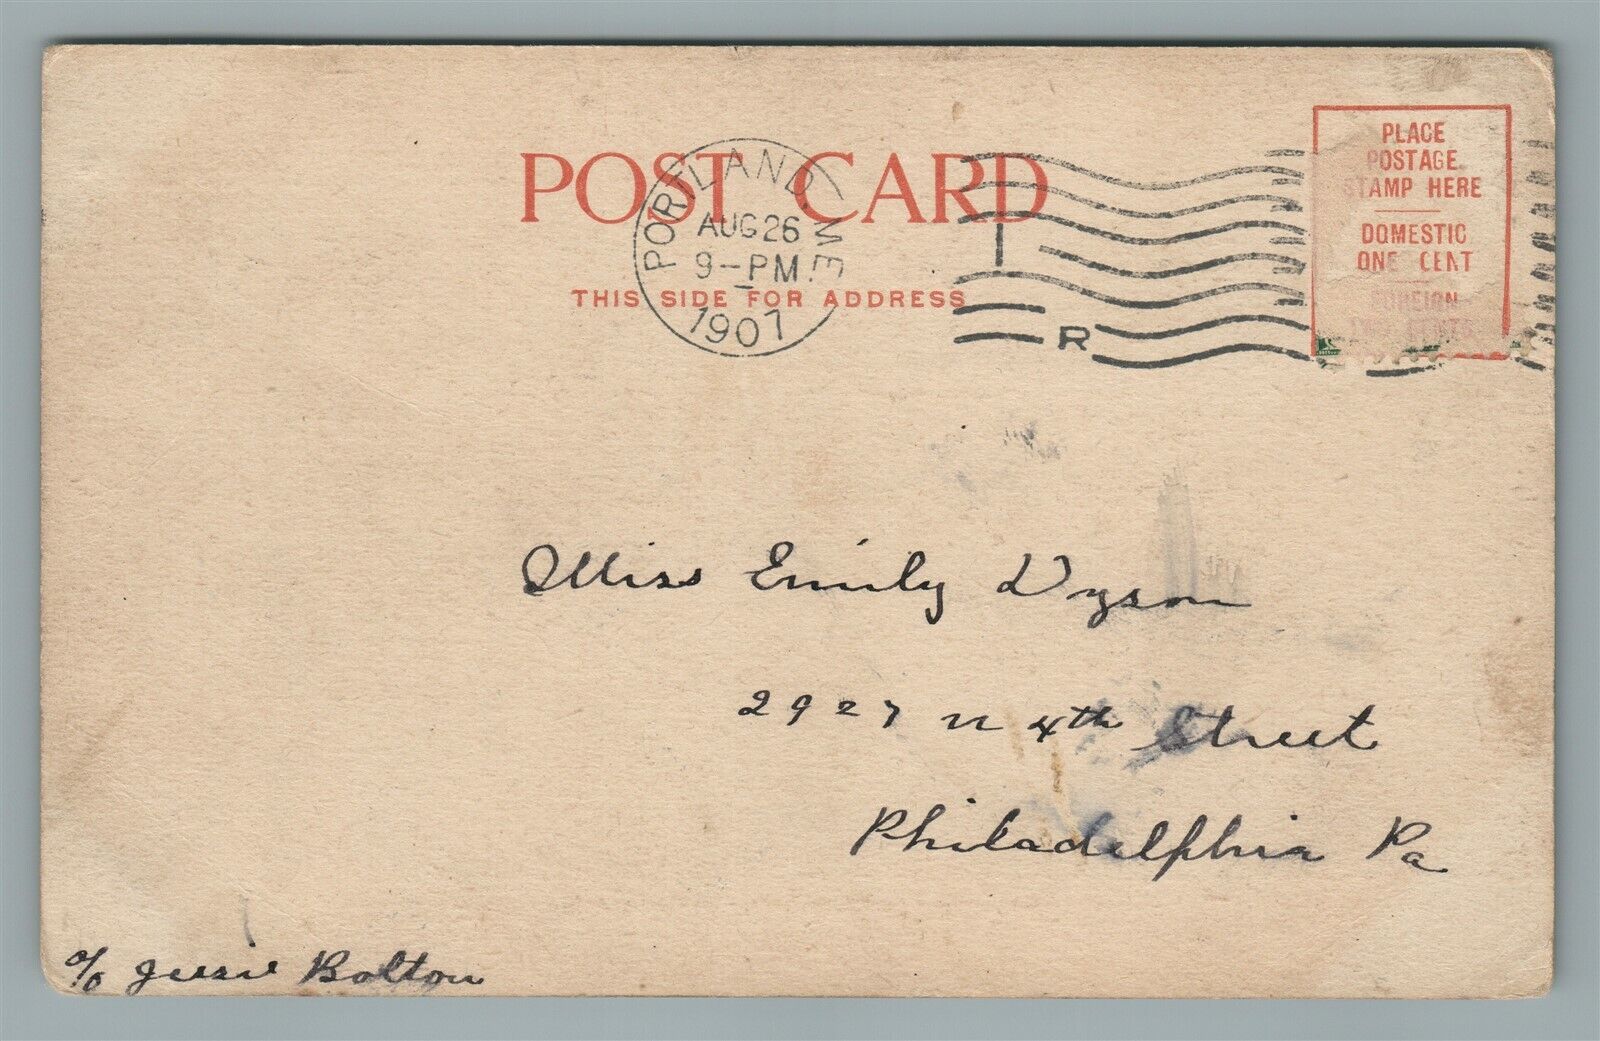 POST CARD
THIS SIDE FOR ADDRESS
PORTLAND, ME.
AUG 26
9-PM
1907
R
PLACE
POSTAGE
STAMP HERE
DOMESTIC
ONE CENT
FOREIGN
TWO CENTS
Miss Emily Dyson
2927 N 4th Street
Philadelphia Pa
c/o Jessie Bolton